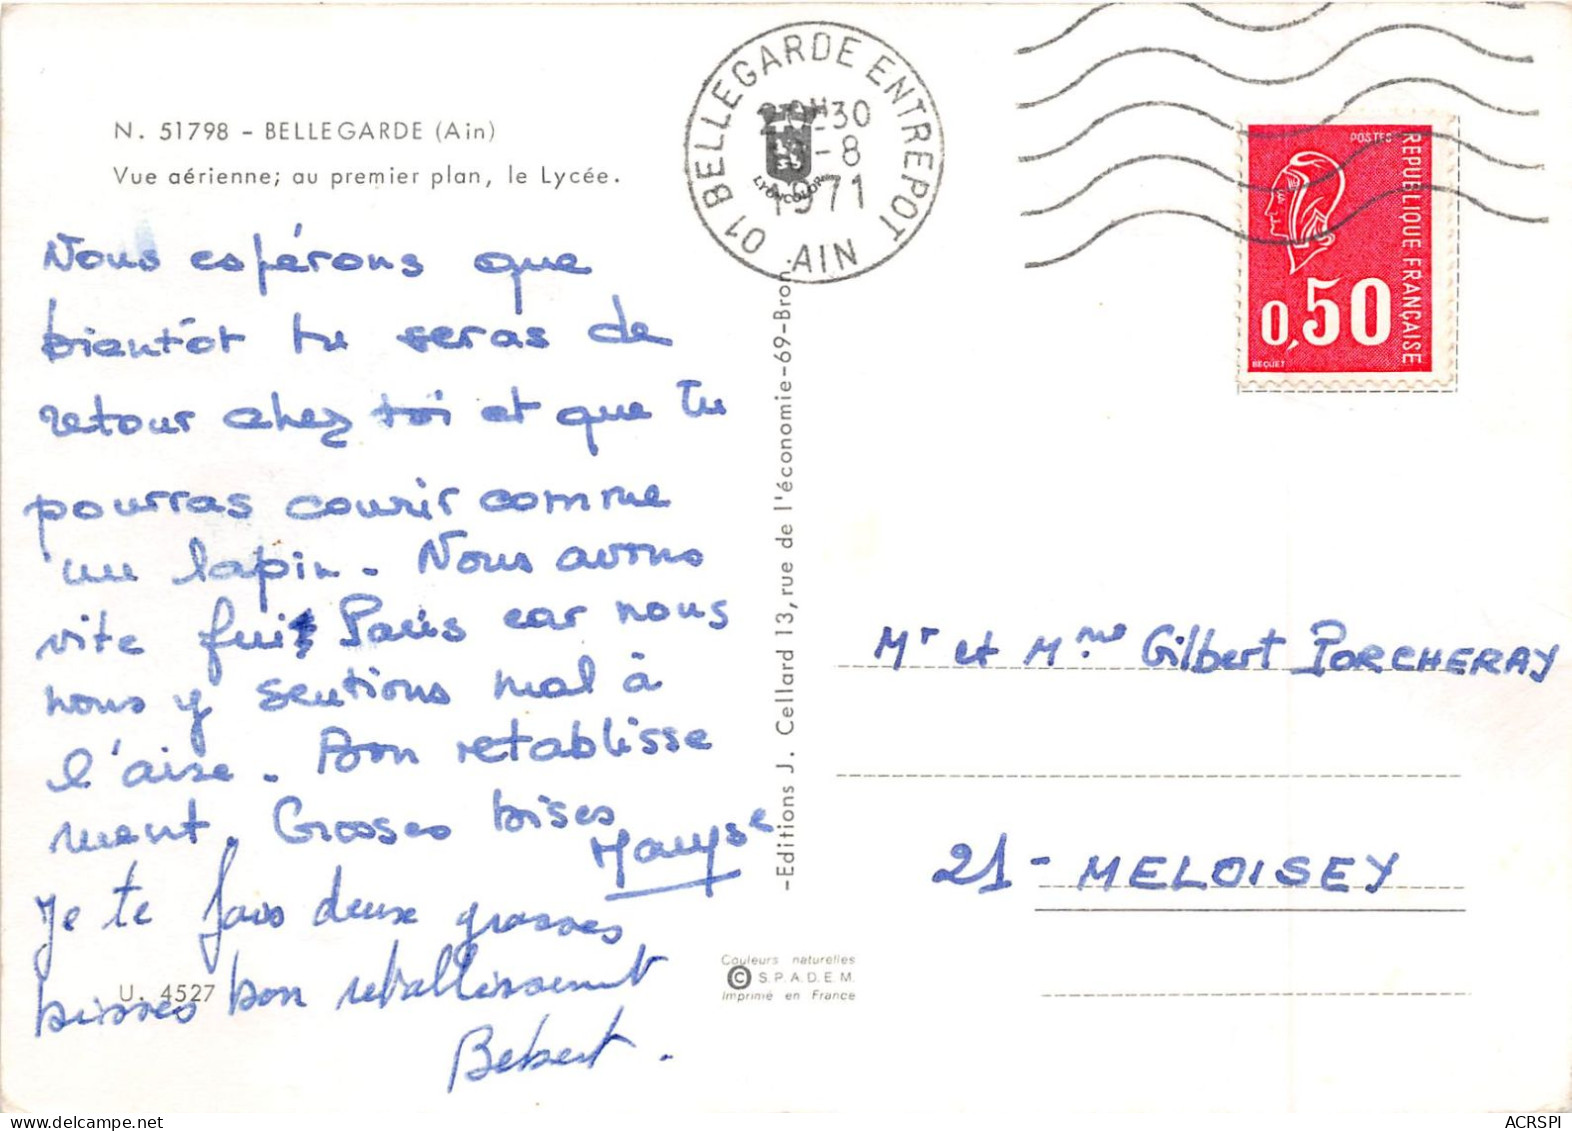 N. 51798 - BELLEGARDE (Ain)
Vue aérienne; au premier plan, le Lycée.
Nous espérons que
bientôt tu seras de
retour chez toi et que tu
pourras courir comme
un lapin. Nous avons
vite fuit Paris car nous
nous y sentions mal à
l'aise. Bon retablisse
ment. Grosses bises
Maryse
Je te fais deux grosses
bisses bon retablissement
Bebert.
U. 4527
01 BELLEGARDE ENTREPOT
H30
-8
1971
AIN
LYONCOLOR
-Editions J. Cellard 13, rue de l'économie-69-Bron.
Couleurs naturelles
© S.P.A.D.E.M.
Imprimé en France
POSTES
REPUBLIQUE FRANÇAISE
0,50
BEQUET
Mr et Mme Gilbert PORCHERAY
21 - MELOISEY
ACRSPI